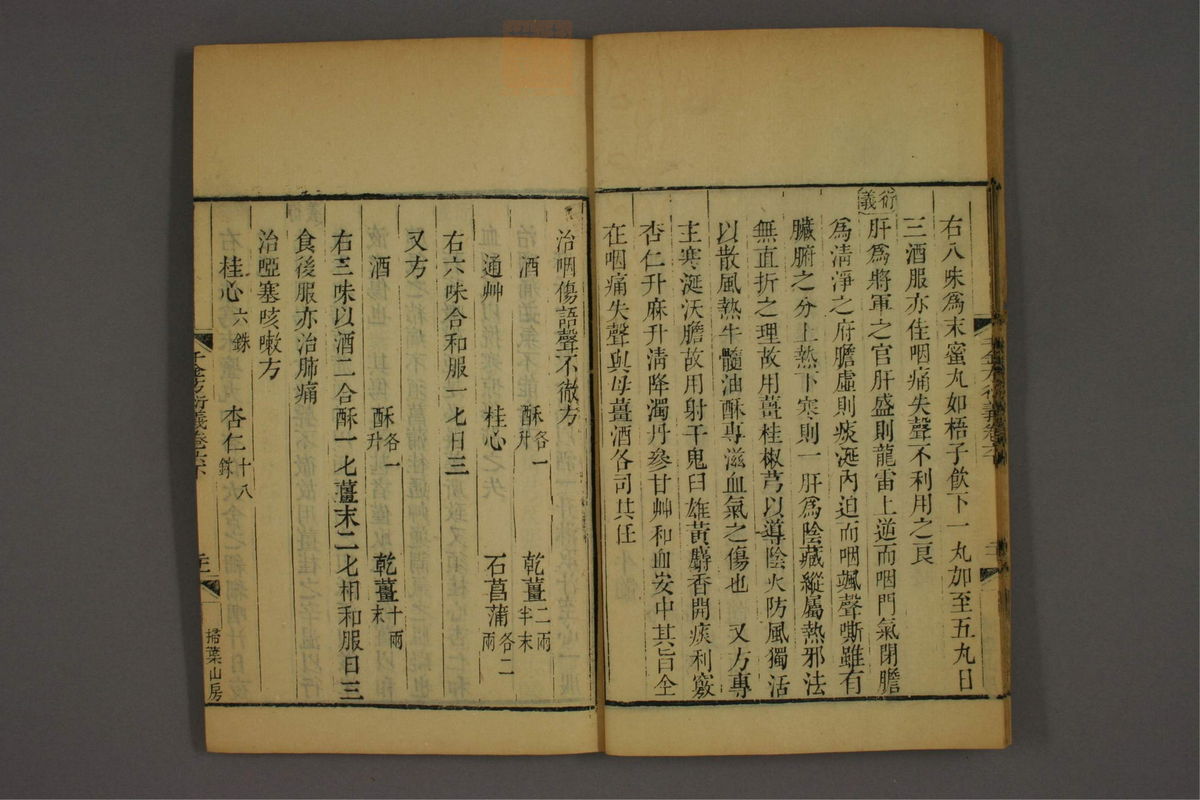 右八味爲末蜜丸如梧子飲下一丸加至五九日
三酒服亦佳咽痛失聲不利用之良
衍義
肝爲將軍之官肝盛則龍雷上逆而咽門氣閉膽
爲淸淨之府膽虛則痰涎內迫而咽颯聲嘶雖有
臟腑之分上熱下寒則一肝爲陰藏縱屬熱邪法
無直折之理故用薑桂椒芎以導陰火防風獨活
以散風熱牛髓油酥專滋血氣之傷也 又方專
主寒涎沃膽故用射干鬼臼雄黃麝香開痰利竅
杏仁升麻升淸降濁丹參甘艸和血安中其旨全
在咽痛失聲與母薑酒各司其任
治咽傷語聲不徹方
酒 酥各一升 乾薑二兩半末
通艸 桂心 石菖蒲各二兩
右六味合和服一匕日三
又方
酒 酥各一升 乾薑十兩末
右三味以酒二合酥一匕薑末二匕相和服日三
食後服亦治肺痛
治瘂塞咳嗽方
桂心六銖 杏仁十八銖
千金方衍義卷六下
掃葉山房